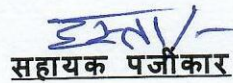 हस्ता/-
सहायक पजींकार